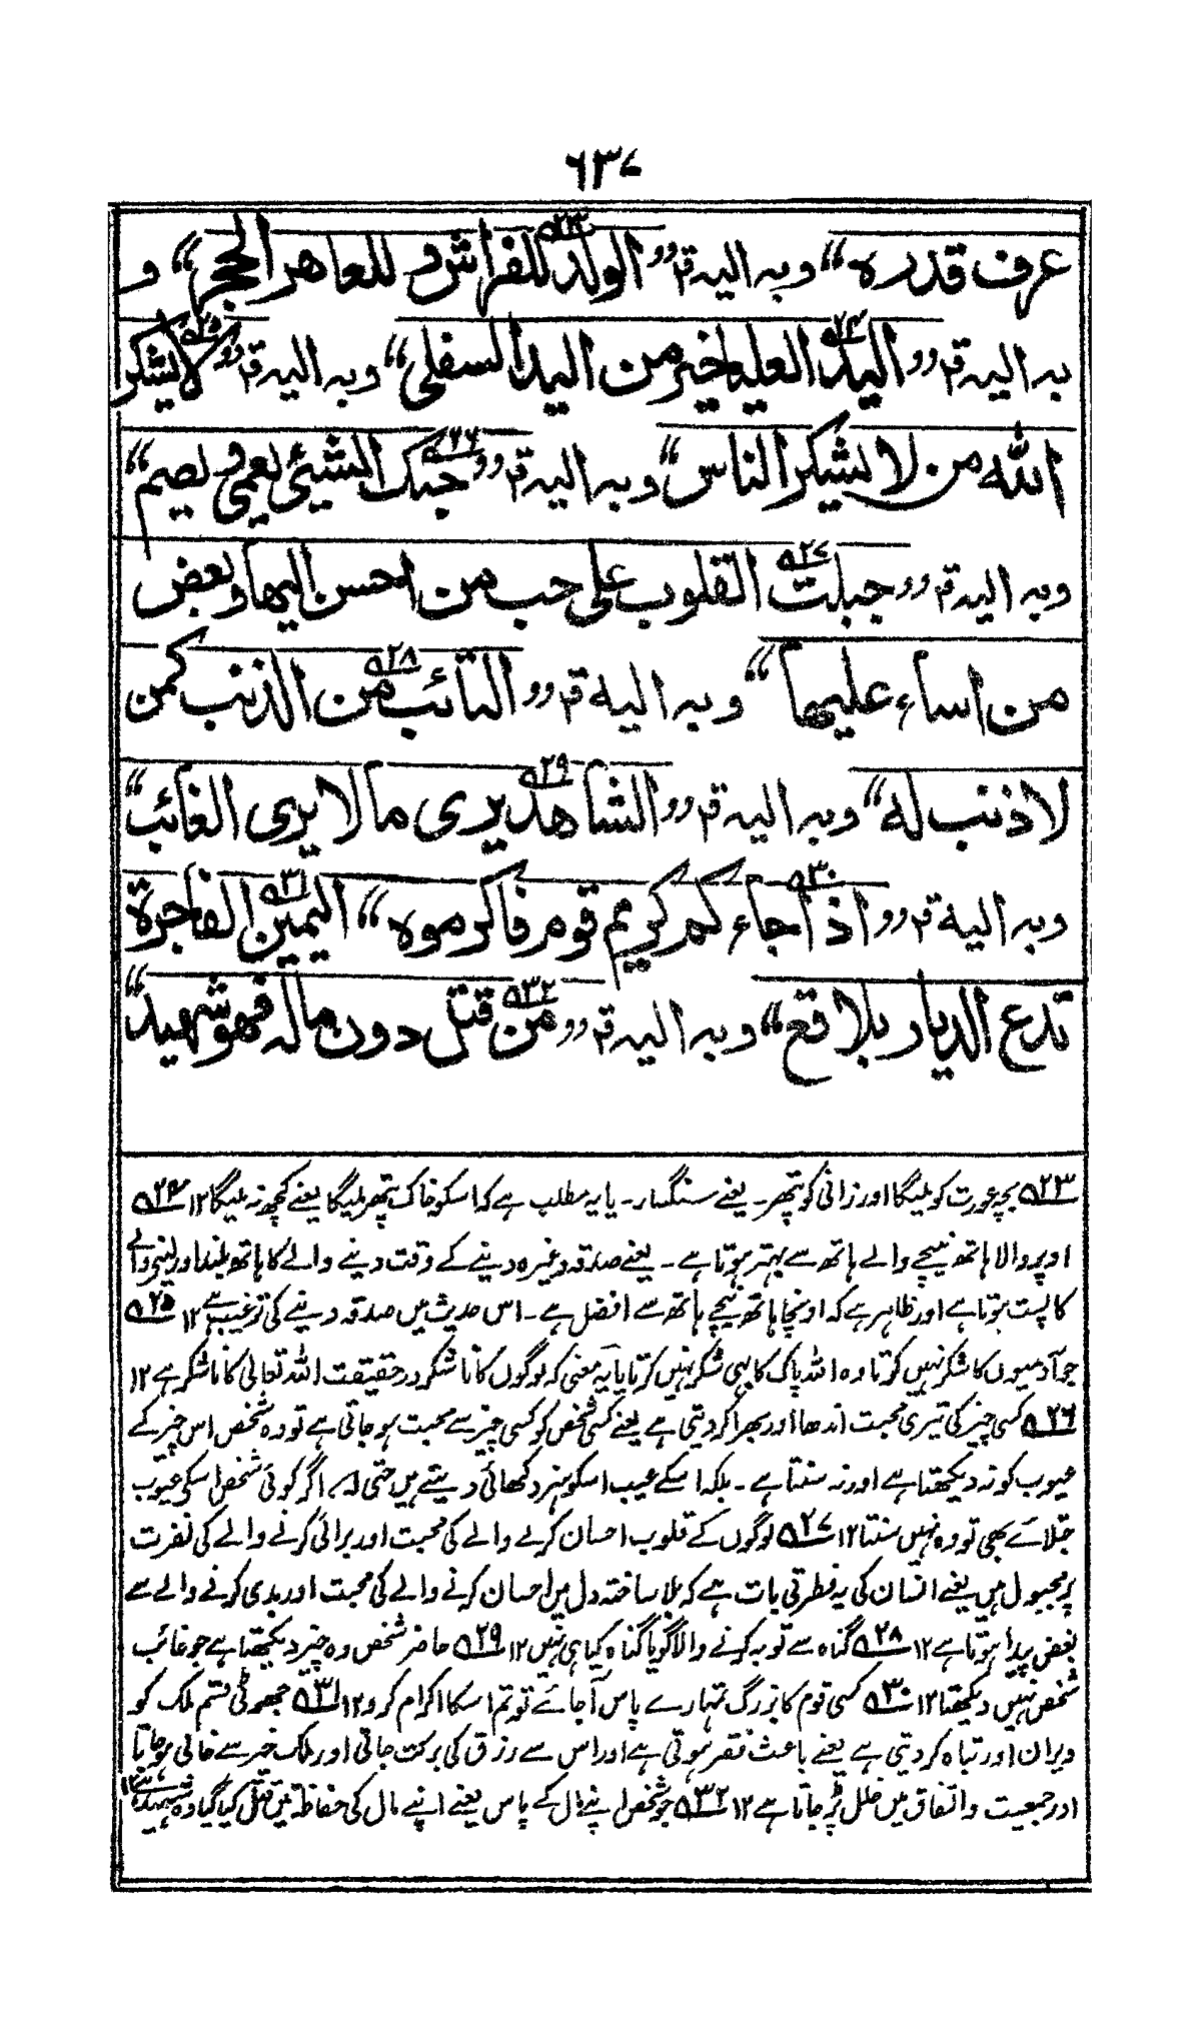 ۶۳۷
عرف قدرہ“ وبہ الیہ قر ”الولد للفراش و للعاھر الحجر“ و ۵۲۳
بہ الیہ قر ”الید العلیا خیر من الید السفلی“ وبہ الیہ قر ”لا یشکر ۵۲۴ ۵۲۵
اللہ من لا یشکر الناس“ وبہ الیہ قر ”حبک الشیئ یعمی و یصم“ ۵۲۶
وبہ الیہ قر ”جبلت القلوب علی حب من احسن الیھا و بعض ۵۲۷
من اساء علیھا“ وبہ الیہ قر ”التائب من الذنب کمن ۵۲۸
لا ذنب لہ“ وبہ الیہ قر ”الشاھد یری ما لا یری الغائب“ ۵۲۹
وبہ الیہ قر ”اذا جاء کم کریم قوم فاکرموہ“ الیمین الفاجرۃ ۵۳۰ ۵۳۱
تدع الدیار بلا قع“ وبہ الیہ قر ”من قتل دون مالہ فھو شھید“ ۵۳۲
۵۲۳ بچہ عورت کو ملیگا اور زانی کو پتھر۔ یعنے سنگسار۔ یا یہ مطلب ہے کہ اسکو خاک پتھر ملیگا یعنے کچھ نہ ملیگا ۱۲ ۵۲۴
اوپر والا ہاتھ نیچے والے ہاتھ سے بہتر ہوتا ہے۔ یعنے صدقہ وغیرہ دینے کے وقت دینے والے کا ہاتھ بلند اور لینے والے
کا پست ہوتا ہے اور ظاہر ہے کہ اونچا ہاتھ نیچے ہاتھ سے افضل ہے۔ اس حدیث میں صدقہ دینے کی ترغیب ہے ۱۲ ۵۲۵
جو آدمیوں کا شکر نہیں کرتا وہ اللہ پاک کا بھی شکر نہیں کرتا یا یہ معنی کہ لوگوں کا نا شکر در حقیقت اللہ تعالیٰ کا نا شکر ہے ۱۲
۵۲۶ کسی چیز کی تیری محبت اندھا اور بہرا کر دیتی ہے یعنے کسی شخص کو کسی چیز سے محبت ہو جاتی ہے تو وہ شخص اس چیز کے
عیوب کو نہ دیکھتا ہے اور نہ سنتا ہے۔ بلکہ اسکے عیب اسکو ہنر دکھائی دیتے ہیں حتی کہ اگر کوئی شخص اسکی عیوب
جتلائے بھی تو وہ نہیں سنتا ۱۲ ۵۲۷ لوگوں کے قلوب احسان کرنے والے کی محبت اور برائی کرنے والے کی نفرت
پر مجبول ہیں یعنے انسان کی یہ فطرتی بات ہے کہ بلا ساختہ دل میں احسان کرنے والے کی محبت اور بدی کرنے والے سے
بغض پیدا ہوتا ہے ۱۲ ۵۲۸ گناہ سے توبہ کرنے والا گویا گناہ کیا ہی نہیں ۱۲ ۵۲۹ حاضر شخص وہ چیز دیکھتا ہے جو غائب
شخص نہیں دیکھتا ۱۲ ۵۳۰ کسی قوم کا بزرگ تمہارے پاس آجائے تو تم اسکا اکرام کرو ۱۲ ۵۳۱ جھوٹی قسم ملک کو
ویران اور تباہ کر دیتی ہے یعنے باعث فقر ہوتی ہے اور اس سے رزق کی برکت جاتی اور ملک خیر سے خالی ہو جاتا
اور جمعیت و اتفاق میں خلل پڑ جاتا ہے ۱۲ ۵۳۲ جو شخص اپنے مال کے پاس یعنے اپنے مال کی حفاظت میں قتل کیا گیا وہ شہید ہے ۱۲